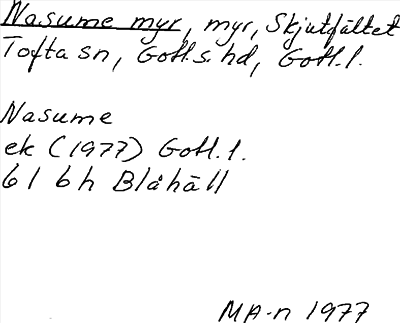 Nasume myr, myr, Skjutfältet
Tofta sn, Gotl. s. hd, Gotl. l.
Nasume
ek (1977) Gotl. l.
6 I 6 h Blåhäll
MA-n 1977